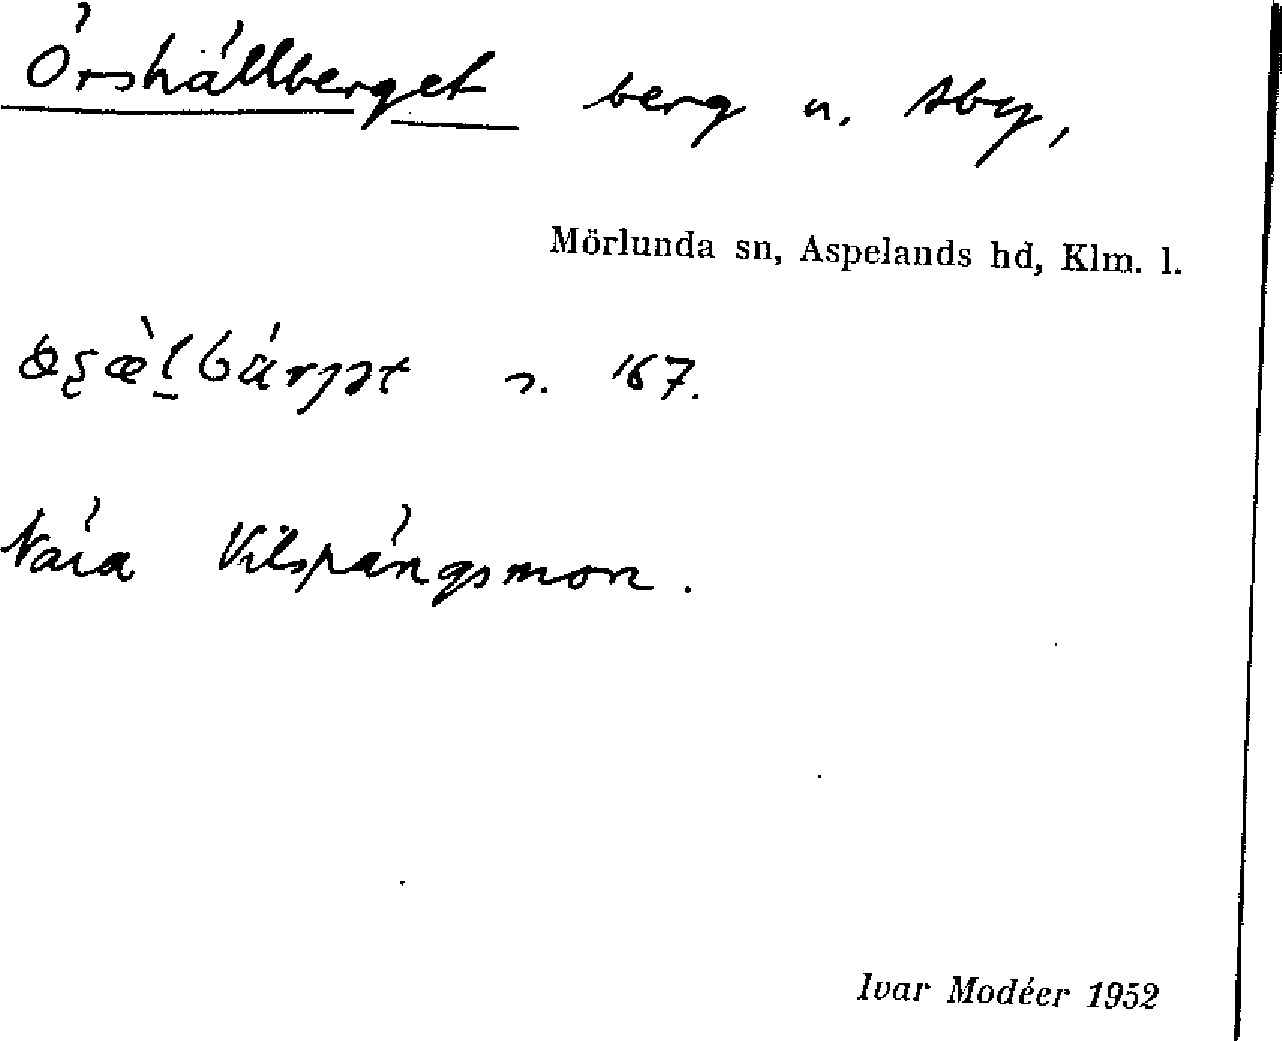 Örshällberget berg n. Åby,
Mörlunda sn, Aspelands hd, Klm. l.
s. 167.
Nära Vilspångsmon.
Ivar Modéer 1952